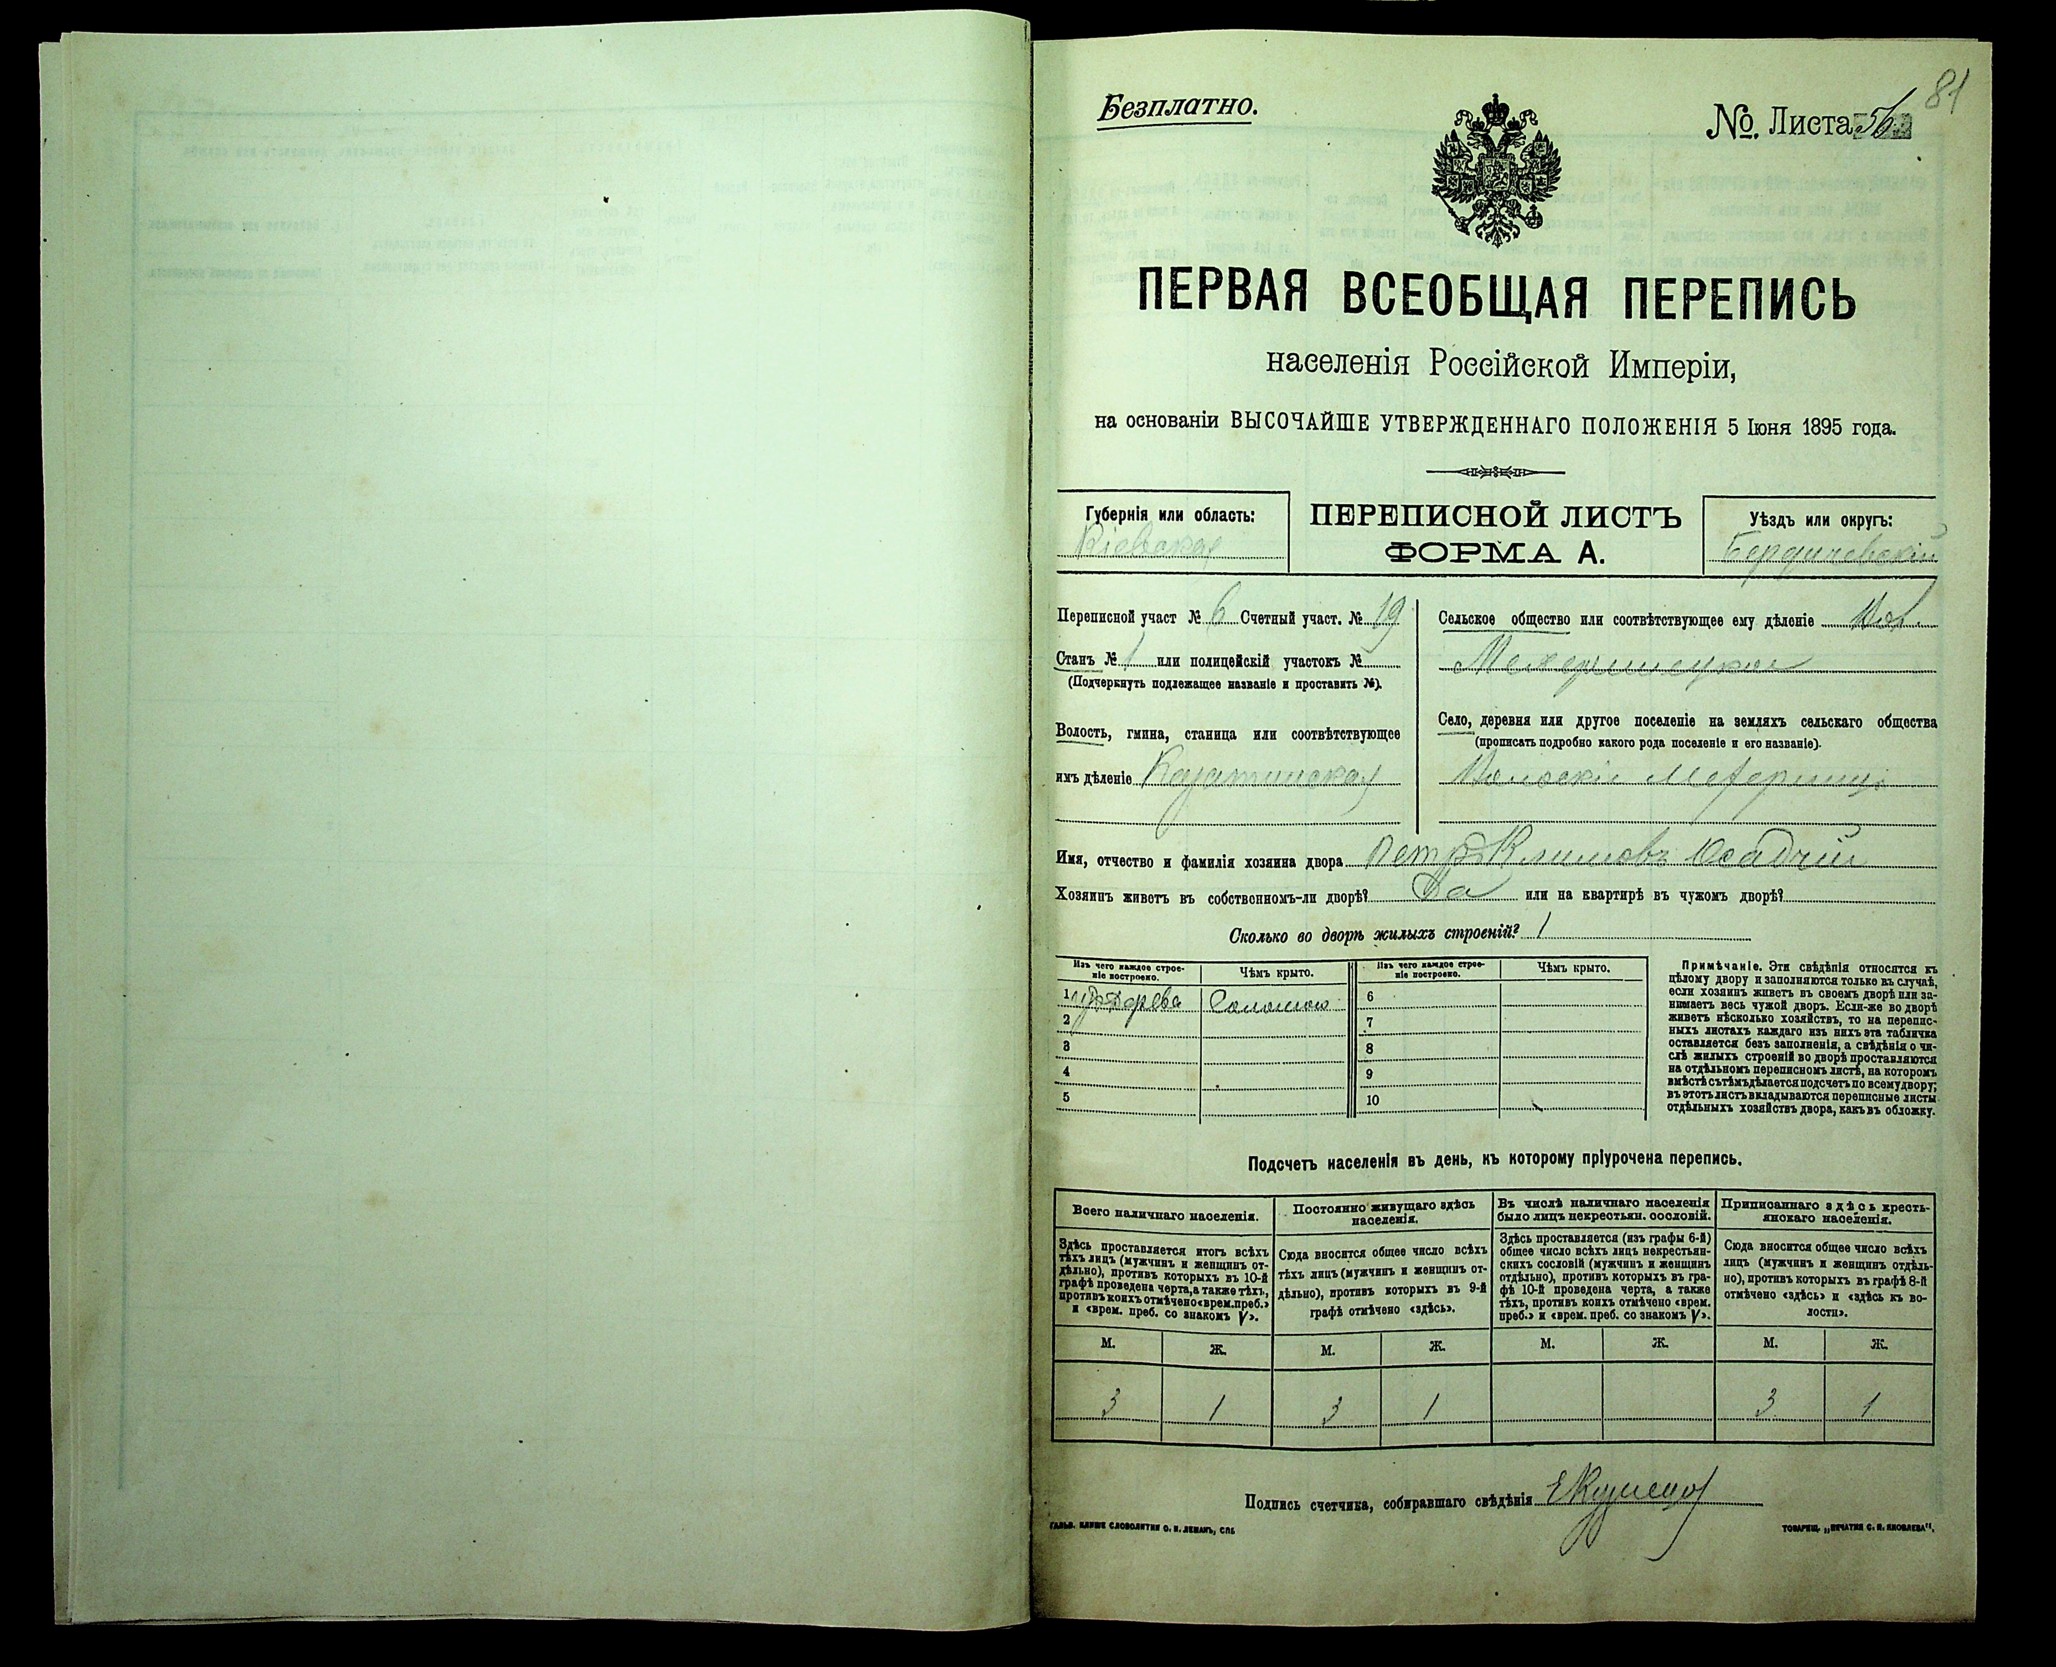 81
Безплатно.
№. Листа 56
ПЕРВАЯ ВСЕОБЩАЯ ПЕРЕПИСЬ
населенія Россійской Имперіи,
на основаніи ВЫСОЧАЙШЕ УТВЕРЖДЕННАГО ПОЛОЖЕНІЯ 5 Іюня 1895 года.
Губернія или область:
Кіевская
ПЕРЕПИСНОЙ ЛИСТЪ
ФОРМА А.
Уѣздъ или округъ:
Бердичевскій
Переписной участ № 6 Счетный участ. № 19
Станъ № 1 или полицейскій участокъ №
(Подчеркнуть подлежащее названіе и проставить №).
Волость, гмина, станица или соотвѣтствующее
имъ дѣленіе Казатинская
Сельское общество или соотвѣтствующее ему дѣленіе Вол.
Село, деревня или другое поселеніе на земляхъ сельскаго общества
(прописать подробно какого рода поселеніе и его названіе).
Имя, отчество и фамилія хозяина двора Петръ Климовъ Осадчій
Хозяинъ живетъ въ собственномъ-ли дворѣ? Да или на квартирѣ въ чужомъ дворѣ?
Сколько во дворѣ жилыхъ строеній? 1
Изъ чего каждое строе-
ніе построено.
Чѣмъ крыто.
Изъ чего каждое строе-
ніе построено.
Чѣмъ крыто.
1 изъ дерева Соломою 6
2 7
3 8
4 9
5 10
Примѣчаніе. Эти свѣдѣнія относятся къ
цѣлому двору и заполняются только въ случаѣ,
если хозяинъ живетъ въ своемъ дворѣ или за-
нимаетъ весь чужой дворъ. Если-же во дворѣ
живетъ нѣсколько хозяйствъ, то на перепис-
ныхъ листахъ каждаго изъ нихъ эта табличка
оставляется безъ заполненія, а свѣдѣнія о чи-
слѣ жилыхъ строеній во дворѣ проставляются
на отдѣльномъ переписномъ листѣ, на которомъ
вмѣстѣ съ тѣмъ дѣлается подсчетъ по всему двору;
въ этотъ листъ вкладываются переписные листы
отдѣльныхъ хозяйствъ двора, какъ въ обложку.
Подсчетъ населенія въ день, къ которому пріурочена перепись.
Всего наличнаго населенія.
Здѣсь проставляется итогъ всѣхъ
тѣхъ лицъ (мужчинъ и женщинъ от-
дѣльно), противъ которыхъ въ 10-й
графѣ проведена черта, а также тѣхъ,
противъ коихъ отмѣчено «врем. преб.»
и «врем. преб. со знакомъ V».
Постоянно живущаго здѣсь
населенія.
Сюда вносится общее число всѣхъ
тѣхъ лицъ (мужчинъ и женщинъ от-
дѣльно), противъ которыхъ въ 9-й
графѣ отмѣчено «здѣсь».
Въ числѣ наличнаго населенія
было лицъ некрестьян. сословій.
Здѣсь проставляется (изъ графы 6-й)
общее число всѣхъ лицъ некрестьян-
скихъ сословій (мужчинъ и женщинъ
отдѣльно), противъ которыхъ въ гра-
фѣ 10-й проведена черта, а также
тѣхъ, противъ коихъ отмѣчено «врем.
преб.» и «врем. преб. со знакомъ V».
Приписаннаго здѣсь кресть-
янскаго населенія.
Сюда вносится общее число всѣхъ
лицъ (мужчинъ и женщинъ отдѣль-
но), противъ которыхъ въ графѣ 8-й
отмѣчено «здѣсь» и «здѣсь къ во-
лости».
М. Ж. М. Ж. М. Ж. М. Ж.
3 1 3 1 3 1
Подпись счетчика, собиравшаго свѣдѣнія
ГАЛЬВ. КЛИШЕ СЛОВОЛИТНИ О. И. ЛЕМАНЪ, СПБ
ТОВАРИЩ. „ПЕЧАТНЯ С. П. ЯКОВЛЕВА“.